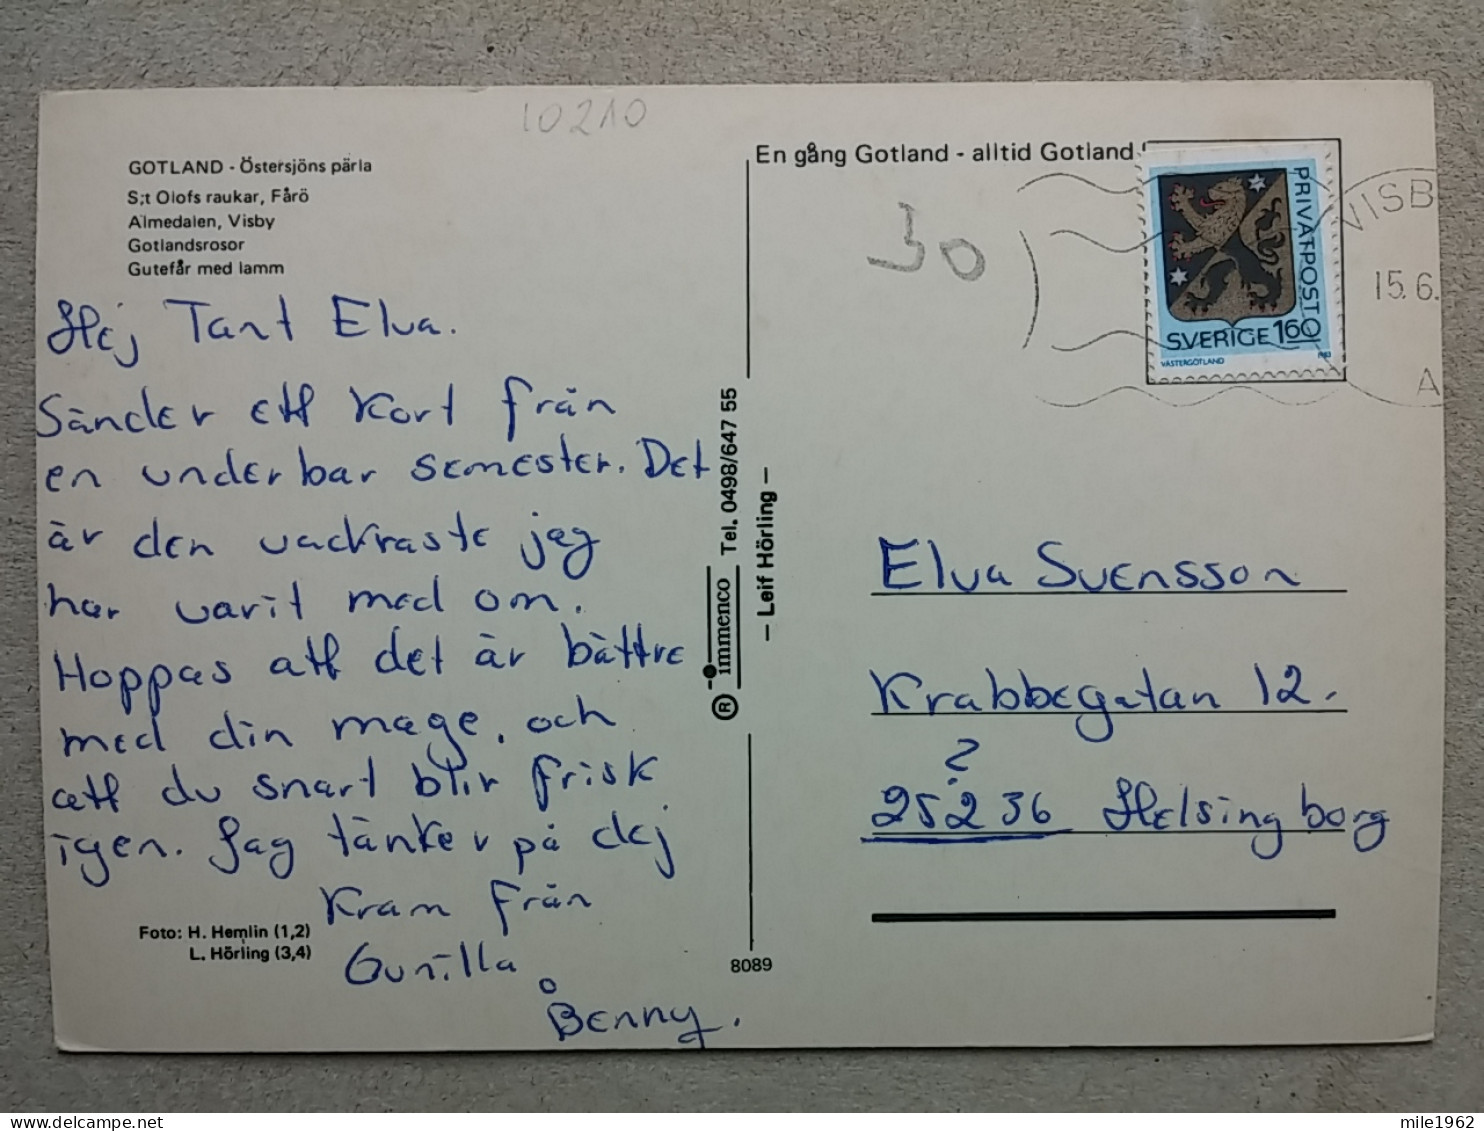 10210
GOTLAND - Östersjöns pärla
S;t Olofs raukar, Fårö
Almedalen, Visby
Gotlandsrosor
Gutefår med lamm
Hej Tant Elva.
Sänder ett kort från
en underbar semester. Det
är den vackraste jag
har varit med om.
Hoppas att det är bättre
med din mage, och
att du snart blir frisk
igen. Jag tänker på dej
Kram från
Gunilla
o Benny.
Foto: H. Hemlin (1,2)
L. Hörling (3,4)
® immenco Tel. 0498/647 55
– Leif Hörling –
8089
En gång Gotland - alltid Gotland !
30
PRIVATPOST
SVERIGE 1.60
VÄSTERGÖTLAND 1983
VISB
15.6.
A
Elva Svensson
Krabbegatan 12.
?
25236 Helsingborg
mile1962